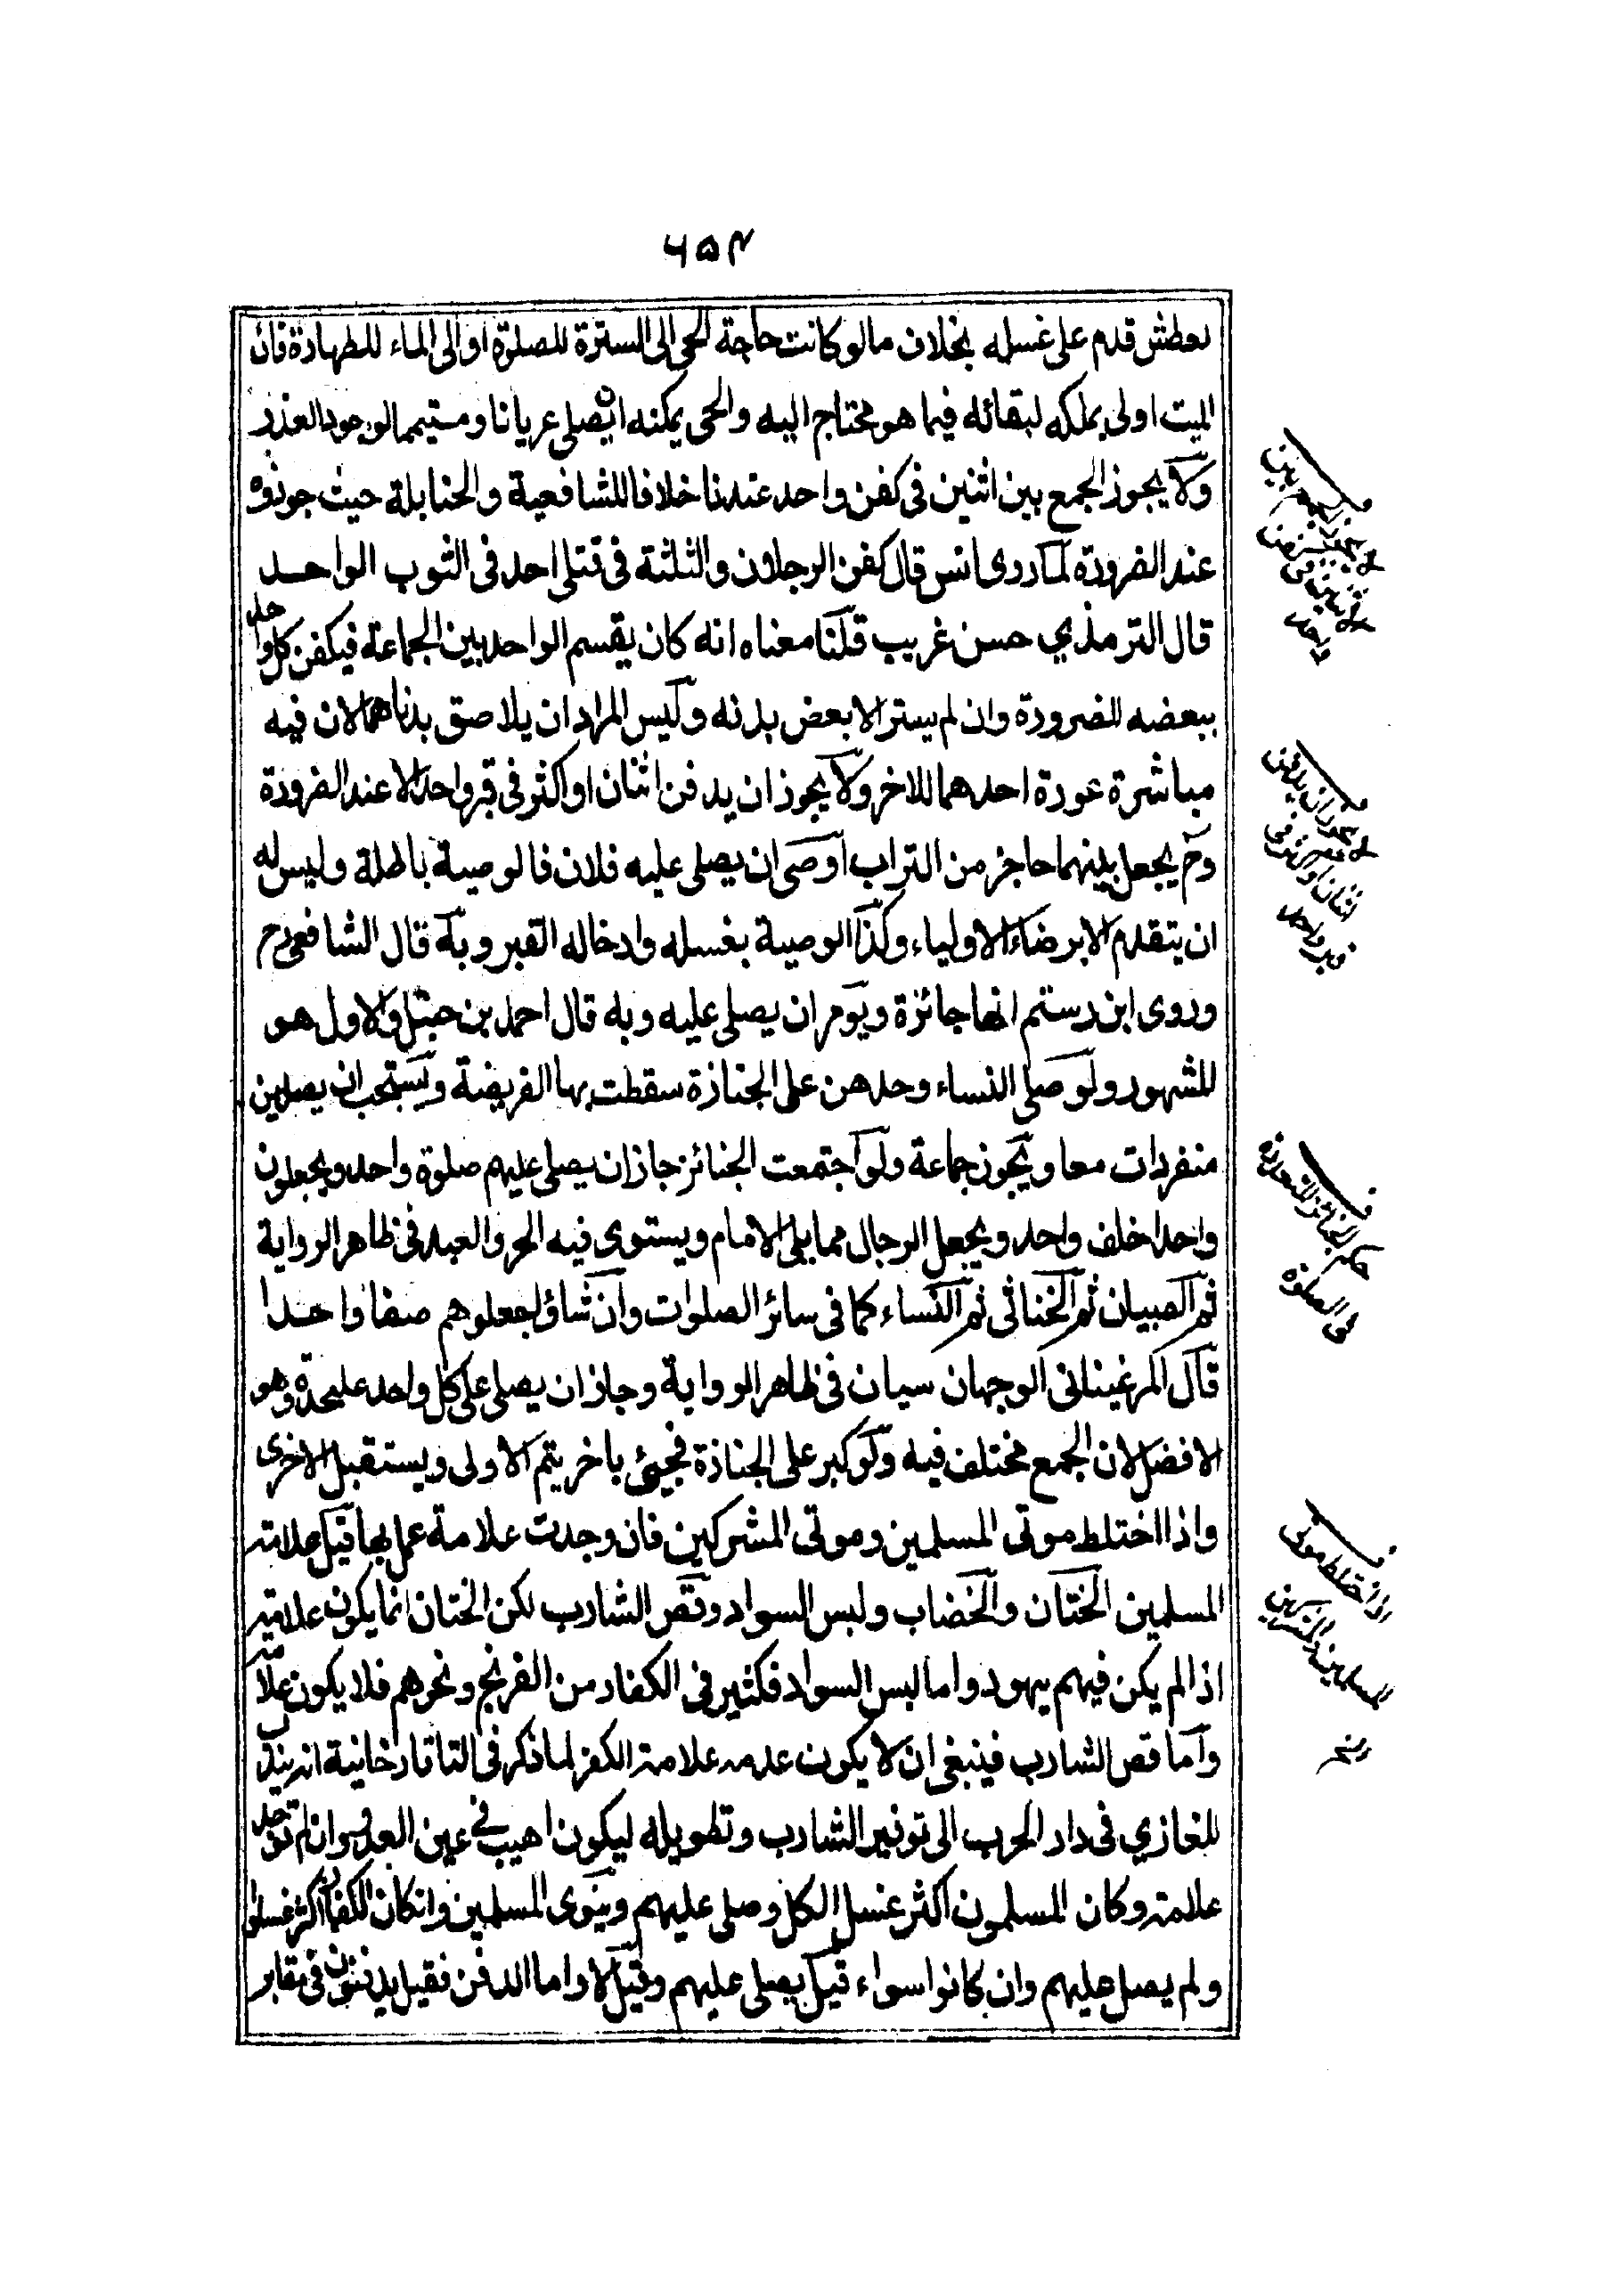 ٦٥٣
لعطش قدم على غسله بخلاف مالو كانت حاجة الحي الى السترة للصلوة او الى الماء للطهارة فان
الميت اولى بملكه لبقائه فيما هو محتاج اليه والحى يمكنه ان يصلى عريانا ومتيمما لوجود العذر
ولا يجوز الجمع بين اثنين فى كفن واحد عندنا خلافا للشافعية والحنابلة حيث جوزوه
عند الضرورة لما روى انس قال كفن الرجلان والثلثة فى قتلى احد فى الثوب الواحد
قال الترمذي حسن غريب قلنا معناه انه كان يقسم الواحد بين الجماعة فيكفن كل واحد
ببعضه للضرورة وان لم يستر الا بعض بدنه وليس المراد ان يلاصق بدناهما لان فيه
مباشرة عورة احدهما للاخر ولا يجوز ان يدفن اثنان او اكثر فى قبر واحد الا عند الضرورة
وح يجعل بينهما حاجز من التراب اوصى ان يصلى عليه فلان فالوصية باطلة وليس له
ان يتقدم الا برضاء الاولياء وكذا الوصية بغسله وادخاله القبر وبه قال الشافعى رح
وروى ابن رستم انها جائزة ويؤمر ان يصلى عليه وبه قال احمد بن حنبل والاول هو
المشهور ولو صلى النساء وحدهن على الجنازة سقطت بها الفريضة ويستحب ان يصلين
منفردات معا ويجوز جماعة ولو اجتمعت الجنائز جاز ان يصلى عليهم صلوة واحد ويجعلون
واحدا خلف واحد ويجعل الرجال مما يلى الامام ويستوى فيه الحر والعبد فى ظاهر الرواية
ثم الصبيان ثم الخناثى ثم النساء كما فى سائر الصلوات وان شاؤا جعلوهم صفا واحدا
قال المرغينانى الوجهان سيان فى ظاهر الرواية وجاز ان يصلى على كل واحد عليحدة وهو
الافضل لان الجمع مختلف فيه ولو كبر على الجنازة فجيئ باخر يتم الاولى ويستقبل الاخرى
واذا اختلط موتى المسلمين وموتى المشركين فان وجدت علامة عمل بها قيل علامة
المسلمين الختان والخضاب ولبس السواد وقص الشارب لكن الختان انما يكون علامة
اذا لم يكن فيهم يهود واما لبس السواد فكثير فى الكفار من الفرنج ونحوهم فلا يكون علامة
واما قص الشارب فينبغى ان لا يكون عدمه علامة الكفر لما ذكر فى التاتارخانية انه يندب
للغازي فى دار الحرب الى توفير الشارب وتطويله ليكون اهيب فى عين العدو وان لم توجد
علامة وكان المسلمون اكثر غسل الكل وصلى عليهم وينوى المسلمين وان كان الكفار اكثر غسلوا
ولم يصل عليهم وان كانوا سواء قيل يصلى عليهم وقيل لا واما الدفن فقيل يدفنون فى مقابر
لا يجوز ان يدفن
اثنان او اكثر فى
قبر واحد
حكم الجنائز المتعددة
فى الصلوة
اذا اختلط موتى
المسلمين والمشركين